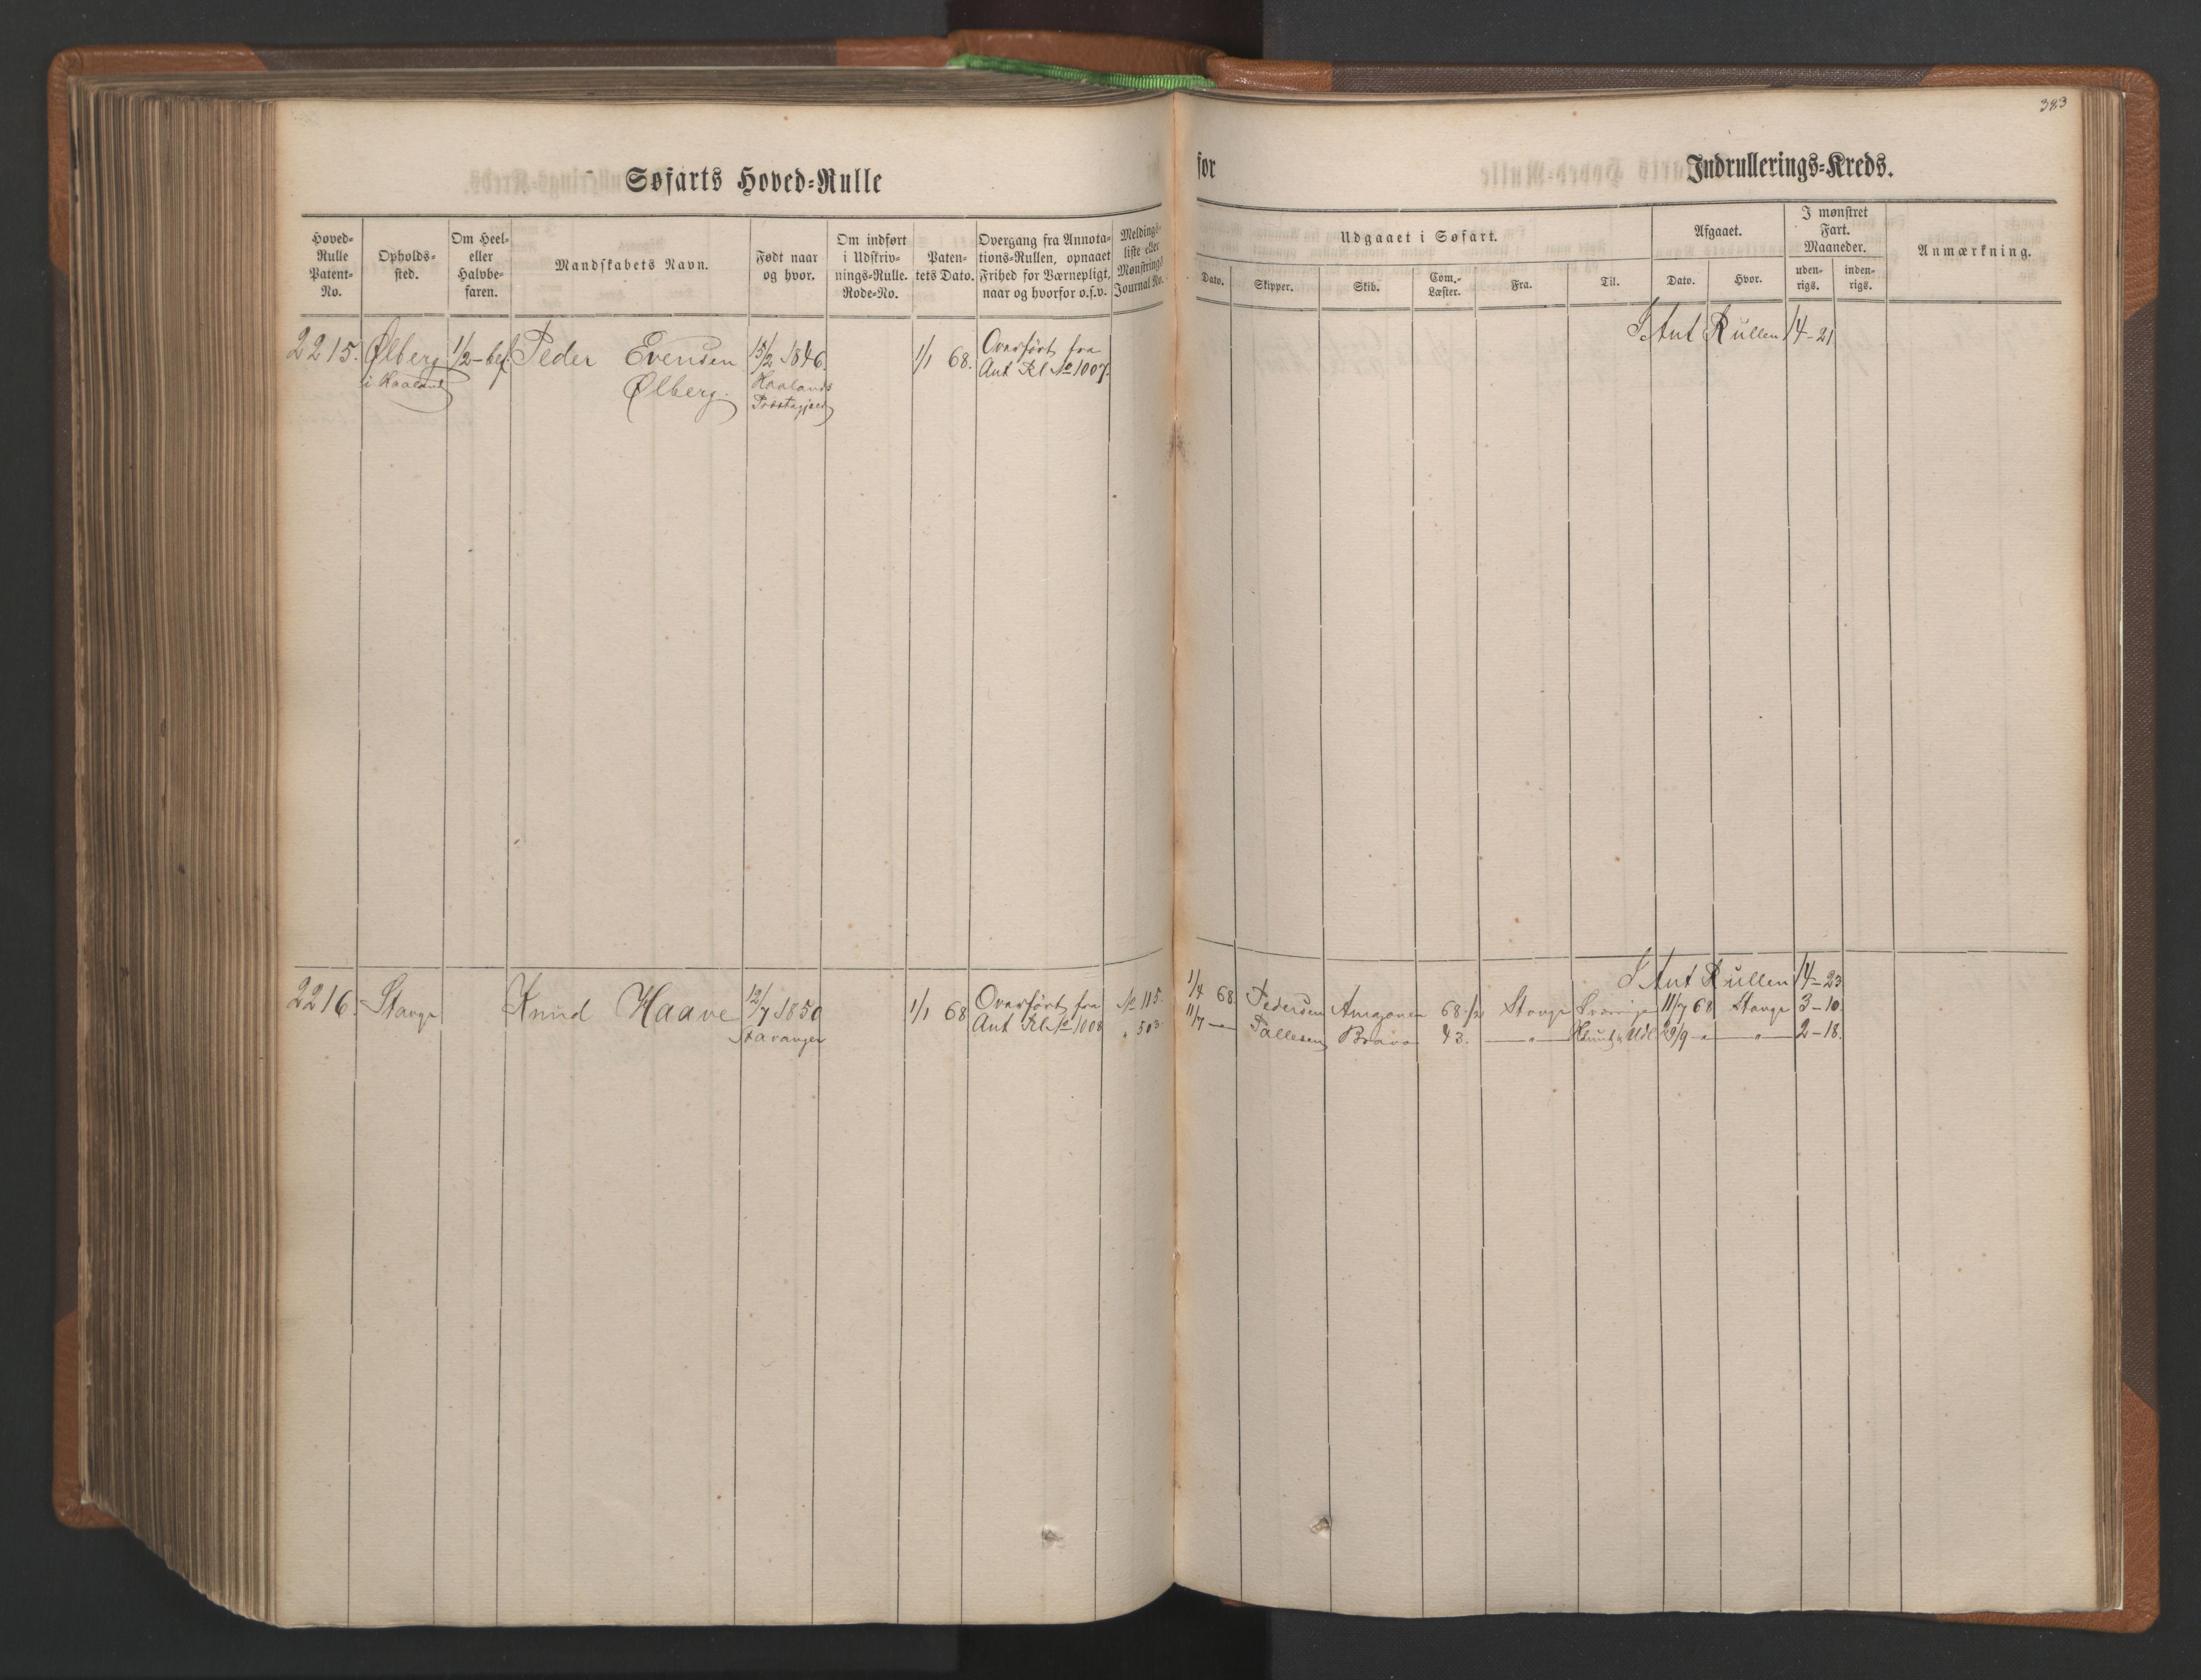 383
Søfarts Hoved-Rulle for Indrullerings-Kreds.
Hoved-Rulle Patent-No.
Opholds-sted.
Om Heel- eller Halvbe-faren.
Mandskabets Navn.
Født naar og hvor.
Om indført i Udskriv-nings-Rulle. Rode-No.
Paten-tets Dato.
Overgang fra Annota-tions-Rullen, opnaaet Frihed for Værnepligt, naar og hvorfor o.s.v.
Meldings-liste eller Mønstrings Journal No.
Udgaaet i Søfart.
Dato.
Skipper.
Skib.
Com.-Læster.
Fra.
Til.
Afgaaet.
Dato.
Hvor.
I mønstret Fart. Maaneder.
uden-rigs.
inden-rigs.
Anmærkning.
2215. Ølberg 1/2-bef. Peder Evensen 15/2 1846. 1/1 68. Overført fra
i Haaland Ølberg. Haalands Ant Rl No 1007.
Præstegjeld
I Ant Rullen 14-21
I Ant Rullen 14-23
2216. Stavgr Knud Haave 12/7 1850 1/1 68 Overført fra No 115. 1/4 68 Pedersen Amazonen 68 1/2 Stavgr 11/7 68 Stavgr 3-10.
Stavanger Ant Rl No 1008 " 503. 11/7 -"- Pallesen Bravo 43. -"- 29/9 -"- -"- 2-18.